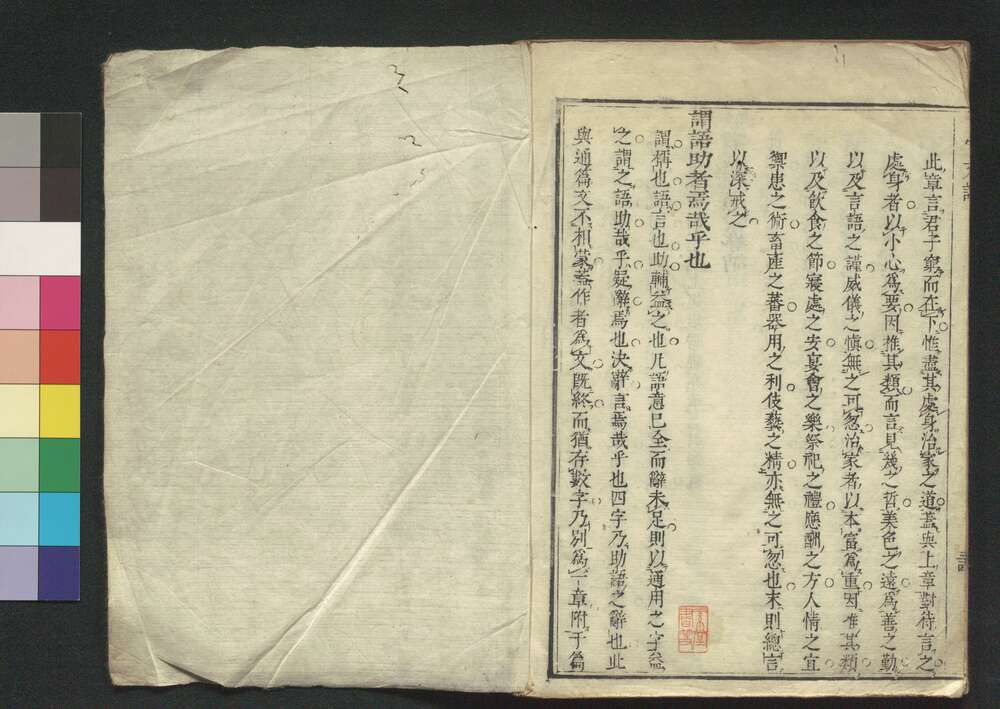 此章言君子窮而在下惟盡其處身治家之道蓋與上章對待言之
處身者以小心為要因推其類而言見幾之哲美色之遠為善之勤
以及言語之謹威儀之慎無之可忽治家者以本富為重因推其類
以及飲食之節寢處之安宴會之樂祭祀之禮應酬之方人情之宜
禦患之術畜產之蕃器用之利伎藝之精亦無之可忽也末則總言
以深戒之
謂語助者焉哉乎也
謂稱也語言也助輔益之也凡語意已全而辭未足則以通用之字益
之謂之語助哉乎疑辭焉也決辭言焉哉乎也四字乃助語之辭也此
與通篇文不相蒙蓋作者為文既終而猶存數字乃別為一章附于篇